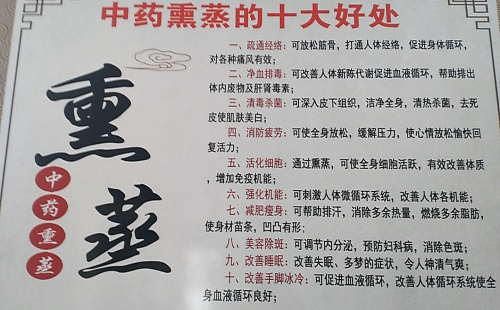 中药熏蒸的十大好处
熏蒸
中药熏蒸
一、疏通经络：可放松筋骨，打通人体经络，促进身体循环，
对各种痛风有效；
二、净血排毒：可改善人体新陈代谢促进血液循环，帮助排出
体内废物及肝肾毒素；
三、清毒杀菌：可深入皮下组织，洁净全身，清热杀菌，去死
皮使肌肤美白；
四、消防疲劳：可使全身放松，缓解压力，使心情放松愉快回
复活力；
五、活化细胞：通过熏蒸，可使全身细胞活跃，有效改善体质
，增加免疫机能；
六、强化机能：可刺激人体微循环系统，改善人体各机能；
七、减肥瘦身：可帮助排汗，消除多余热量，燃烧多余脂肪，
使身材苗条，凹凸有形；
八、美容除斑：可调节内分泌，预防妇科病，消除色斑；
九、改善睡眠：改善失眠、多梦的症状，令人神清气爽；
十、改善手脚冰冷：可促进血液循环，改善人体循环系统使全
身血液循环良好；